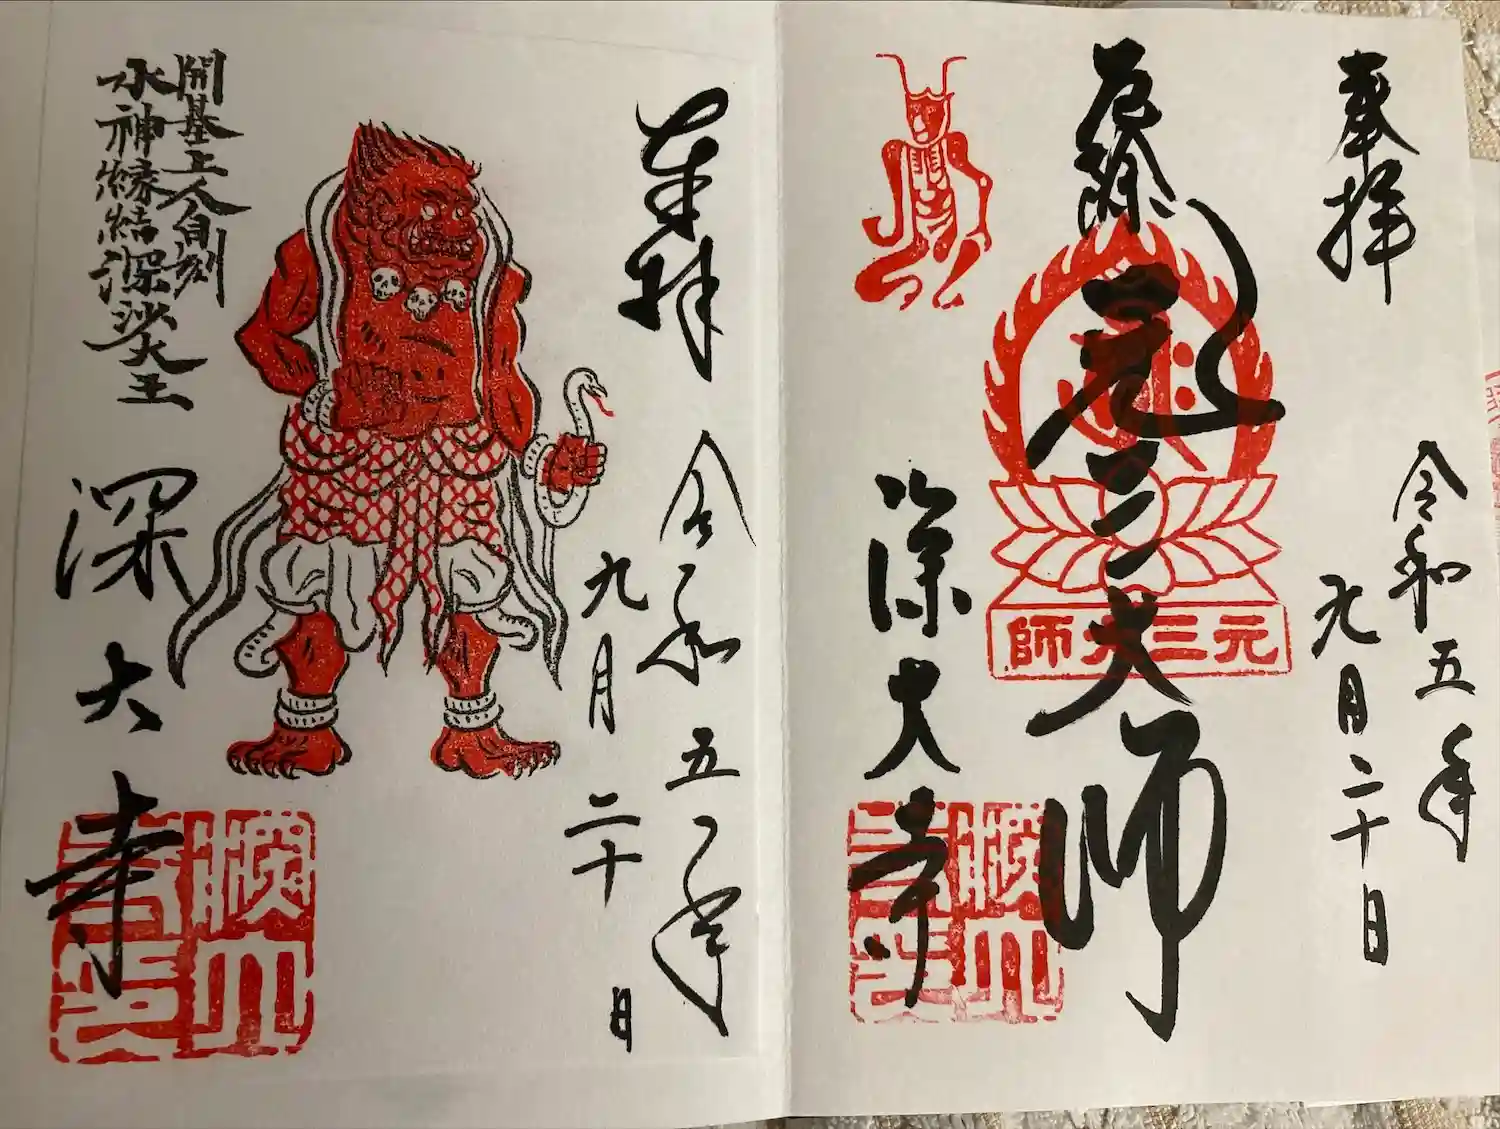 奉拝
令和五年
九月二十日
厄除
元三大師
元三大師
深大寺
奉拝
令和五年
九月二十日
開基上人自刻
水神縁結深沙大王
深大寺